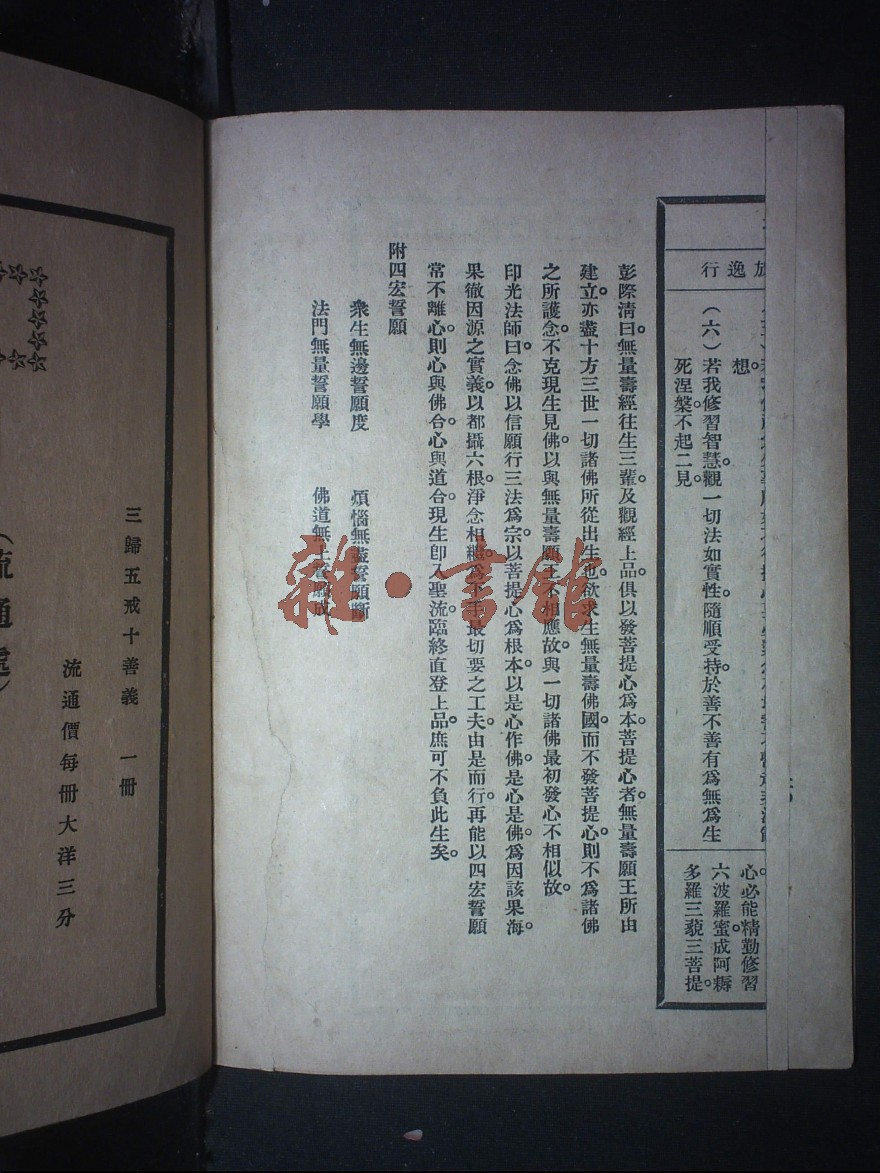 放逸行
想。
（六）若我修習智慧。觀一切法如實性。隨順受持。於善不善有爲無爲生
死涅槃。不起二見。
心。必能精勤修習
六波羅蜜。成阿耨
多羅三藐三菩提。
彭際淸曰。無量壽經往生三輩。及觀經上品。俱以發菩提心爲本。菩提心者。無量壽願王所由
建立。亦盡十方三世一切諸佛所從出生也。欲求生無量壽佛國。而不發菩提心。則不爲諸佛
之所護念。不克現生見佛。以與無量壽願王不相應故。與一切諸佛最初發心不相似故。
印光法師曰。念佛以信願行三法爲宗。以菩提心爲根本。以是心作佛。是心是佛。爲因該果海。
果徹因源之實義。以都攝六根。淨念相繼。爲下手最切要之工夫。由是而行。再能以四宏誓願
常不離心。則心與佛合。心與道合。現生卽入聖流。臨終直登上品。庶可不負此生矣。
附四宏誓願
衆生無邊誓願度　煩惱無盡誓願斷
法門無量誓願學　佛道無上誓願成
三歸五戒十善義　一冊
流通價每冊大洋三分
（流通處）
雜·書館